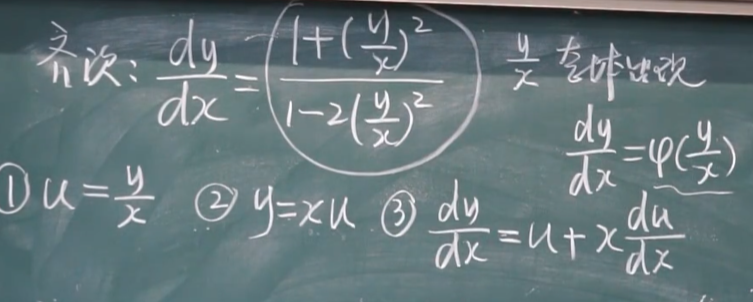 齐次: dy/dx = (1+(y/x)²)/(1-2(y/x)²) y/x 整体出现
dy/dx = φ(y/x)
① u = y/x ② y=xu ③ dy/dx = u + x du/dx